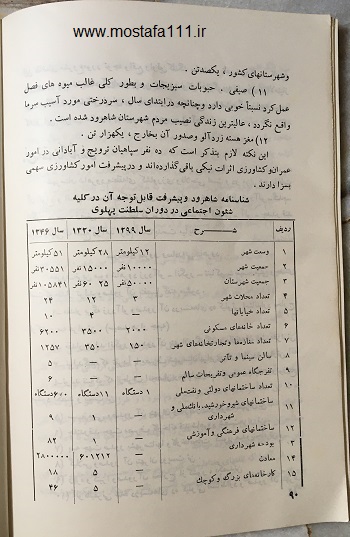 www.mostafa111.ir
وشهرستانهای کشور ، یکصدتن .
۱۱) صیفی ، حبوبات سبزیجات و بطور کلی غالب میوه های فصل
عمل کرد نسبتاً خوبی دارد وچنانچه درابتدای سال ، سردرختی مورد آسیب سرما
واقع نگردد ، عالیترین زندگی نصیب مردم شهرستان شاهرود شده است .
۱۲) مغز هسته زردآلو وصدور آن بخارج ، یکهزار تن .
این نکته لازم بتذکر است که ده نفر سپاهیان ترویج و آبادانی در امور
عمران وکشاورزی اثرات نیکی باقی گذارده‌اند و درپیشرفت امور کشاورزی سهمی
بسزا دارند .
شناسنامه شاهرود و پیشرفت قابل توجه آن در کلیه
شئون اجتماعی در دوران سلطنت پهلوی
ردیف شرح سال ۱۲۹۹ سال ۱۳۲۰ سال ۱۳۴۶
۱ وسعت شهر ۱۲ کیلومتر ۲۸ کیلومتر ۵۱ کیلومتر
۲ جمعیت شهر ۱۰۰۰۰ نفر ۱۵۰۰۰ نفر ۳۰۵۵۱ نفر
۳ جمعیت شهرستان ۵۰۰۰۰ نفر ۶۰۰۰۰ نفر ۱۰۵۸۴۱ نفر
۴ تعداد محلات شهر ۳ ۱۲ ۲۴
۵ تعداد خیابانها — ۴ ۱۰
۶ تعداد خانه‌های مسکونی ۲۰۰۰ ۳۵۰۰ ۶۲۰۰
۷ تعداد مغازه‌ها وتجارتخانه‌های شهر ۱۵۰ ۳۵۰ ۱۲۵۷
۸ سالن سینما و تآتر — — ۵
۹ تفرجگاه عمومی وتفریحات سالم — — ۶
۱۰ تعداد ساختمانهای دولتی ونفت‌ملی ۱ دستگاه ۱۱ دستگاه دستگاه
۱۱ ساختمانهای شیروخورشید، بانک‌ملی و
شهرداری — ۱ ۹
۱۲ ساختمانهای فرهنگی و آموزشی — ۱ ۸۲
۳ بودجه شهرداری — ۶۰۱۲۱۲ ۲۸۰۰۰۰۰۰
۱۴ معادن — ۵ ۱۸
۱۵ کارخانه‌های بزرگ وکوچک — ۵ ۴۶
۹۰